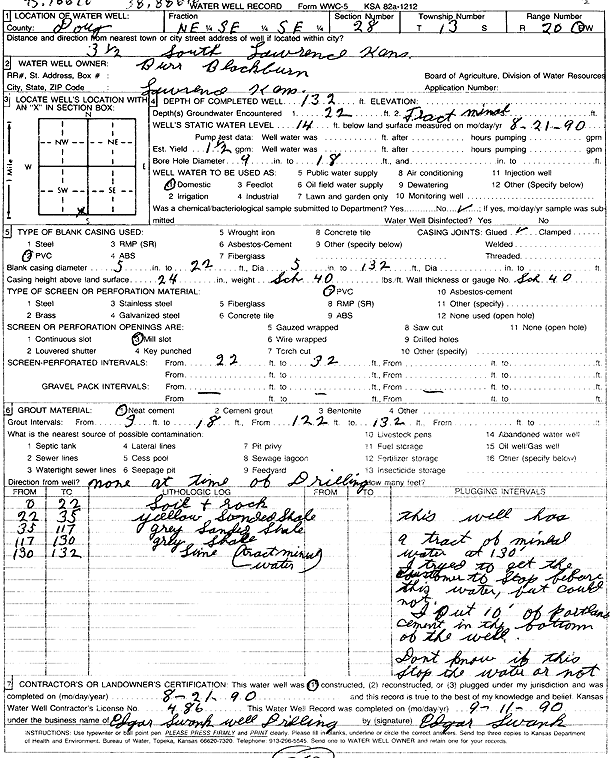 WATER WELL RECORD Form WWC-5 KSA 82a-1212
1 LOCATION OF WATER WELL: Fraction Section Number Township Number Range Number
County: Doug NE ¼ SE ¼ SE ¼ 28 T 13 S R 20 E/W
Distance and direction from nearest town or city street address of well if located within city?
3 1/2 South Lawrence Kans.
2 WATER WELL OWNER: Burr Blackburn
RR#, St. Address, Box # : Board of Agriculture, Division of Water Resources
City, State, ZIP Code : Lawrence Kans. Application Number:
3 LOCATE WELL'S LOCATION WITH AN "X" IN SECTION BOX:
N
NW NE
W E
SW SE
X
S
1 Mile
4 DEPTH OF COMPLETED WELL 132 ft. ELEVATION:
Depth(s) Groundwater Encountered 1. 22 ft. 2. Tract minal
WELL'S STATIC WATER LEVEL 14 ft. below land surface measured on mo/day/yr 8-21-90
Pump test data: Well water was ft. after hours pumping gpm
Est. Yield 1 1/2 gpm: Well water was ft. after hours pumping gpm
Bore Hole Diameter 9 in. to 18 ft., and in. to ft.
WELL WATER TO BE USED AS: 5 Public water supply 8 Air conditioning 11 Injection well
1 Domestic 3 Feedlot 6 Oil field water supply 9 Dewatering 12 Other (Specify below)
2 Irrigation 4 Industrial 7 Lawn and garden only 10 Monitoring well
Was a chemical/bacteriological sample submitted to Department? Yes No ✓; If yes, mo/day/yr sample was sub-
mitted Water Well Disinfected? Yes No
5 TYPE OF BLANK CASING USED: 5 Wrought iron 8 Concrete tile CASING JOINTS: Glued ✓ Clamped
1 Steel 3 RMP (SR) 6 Asbestos-Cement 9 Other (specify below) Welded
2 PVC 4 ABS 7 Fiberglass Threaded
Blank casing diameter 5 in. to 22 ft., Dia 5 in. to 132 ft., Dia in. to ft.
Casing height above land surface 24 in., weight Sch 40 lbs./ft. Wall thickness or gauge No. Sch 40
TYPE OF SCREEN OR PERFORATION MATERIAL: 7 PVC 10 Asbestos-cement
1 Steel 3 Stainless steel 5 Fiberglass 8 RMP (SR) 11 Other (specify)
2 Brass 4 Galvanized steel 6 Concrete tile 9 ABS 12 None used (open hole)
SCREEN OR PERFORATION OPENINGS ARE: 5 Gauzed wrapped 8 Saw cut 11 None (open hole)
1 Continuous slot 3 Mill slot 6 Wire wrapped 9 Drilled holes
2 Louvered shutter 4 Key punched 7 Torch cut 10 Other (specify)
SCREEN-PERFORATED INTERVALS: From 22 ft. to 32 ft., From ft. to ft.
From ft. to ft., From ft. to ft.
GRAVEL PACK INTERVALS: From — ft. to — ft., From — ft. to ft.
From ft. to ft., From ft. to ft.
6 GROUT MATERIAL: 1 Neat cement 2 Cement grout 3 Bentonite 4 Other
Grout Intervals: From 3 ft. to 18 ft., From 122 ft. to 132 ft., From ft. to ft.
What is the nearest source of possible contamination: 10 Livestock pens 14 Abandoned water well
1 Septic tank 4 Lateral lines 7 Pit privy 11 Fuel storage 15 Oil well/Gas well
2 Sewer lines 5 Cess pool 8 Sewage lagoon 12 Fertilizer storage 16 Other (specify below)
3 Watertight sewer lines 6 Seepage pit 9 Feedyard 13 Insecticide storage
Direction from well? none at time of Drilling How many feet?
FROM TO LITHOLOGIC LOG FROM TO PLUGGING INTERVALS
0 22 Soil + rock
22 35 yellow Sanded Shale
35 117 grey Sanded Shale
117 130 grey Shale
130 132 Lime (tract minul water)
this well has
a tract of minkel
water at 130'
I tryed to get the
customer to stop before
this water, but could
not.
I put 10' of portland
cement in the bottom
of the well.
Dont know if this
stop the water or not
7 CONTRACTOR'S OR LANDOWNER'S CERTIFICATION: This water well was (1) constructed, (2) reconstructed, or (3) plugged under my jurisdiction and was
completed on (mo/day/year) 8-21-90 and this record is true to the best of my knowledge and belief. Kansas
Water Well Contractor's License No. 486 This Water Well Record was completed on (mo/day/yr) 9-11-90
under the business name of Edgar Swank well Drilling by (signature) Edgar Swank
INSTRUCTIONS: Use typewriter or ball point pen. PLEASE PRESS FIRMLY and PRINT clearly. Please fill in blanks, underline or circle the correct answers. Send top three copies to Kansas Department
of Health and Environment, Bureau of Water, Topeka, Kansas 66620-7320. Telephone: 913-296-5545. Send one to WATER WELL OWNER and retain one for your records.